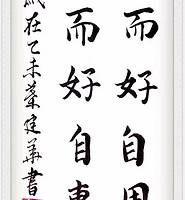 而好自用
而好自專
歲在乙未葉建華書